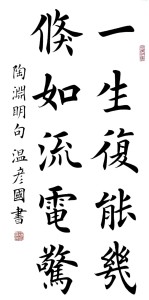 一生復能幾
倏如流電驚
陶淵明句 溫彥國書